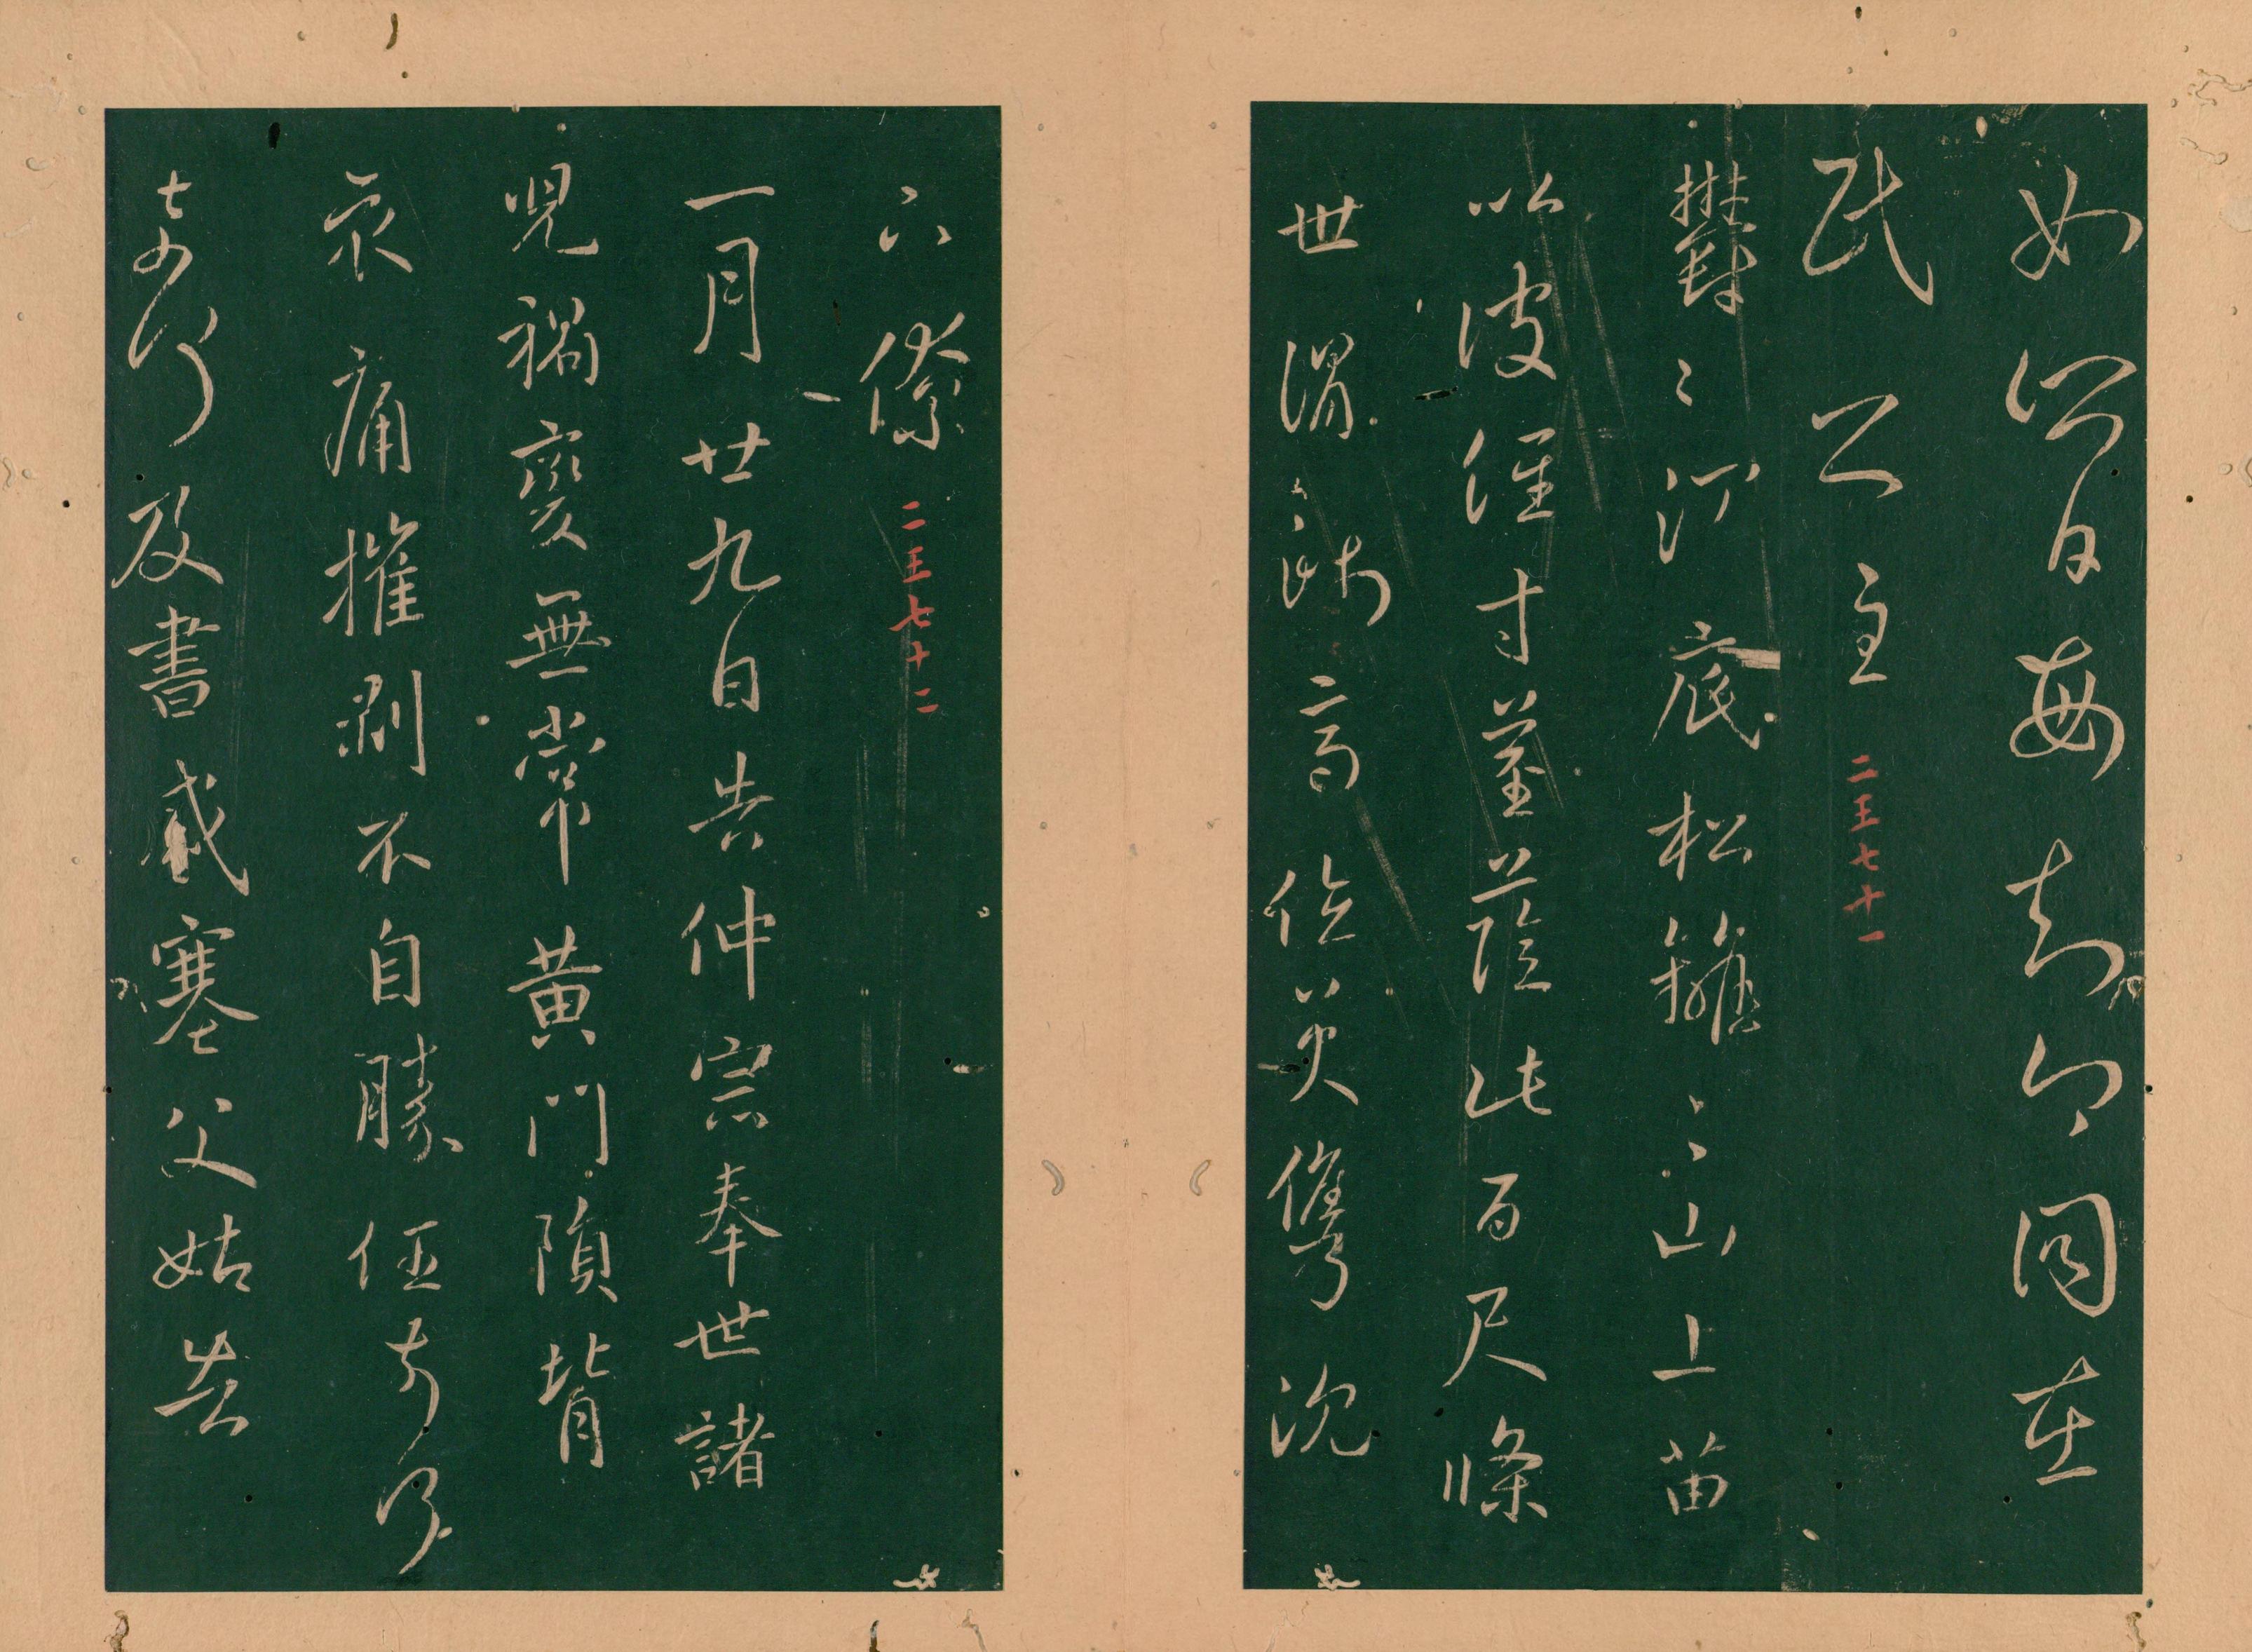 日每知卿同在
二王七十一
鬱〻澗底松離〻山上苗
以彼徑寸莖蔭此百尺條
世胄躡高位英儁沈
下僚
二王七十二
一月廿九日告仲宗奉世諸
兒禍變無常黃門隕背
哀痛摧剥不自勝任奈何
奈何及書感塞父姑告